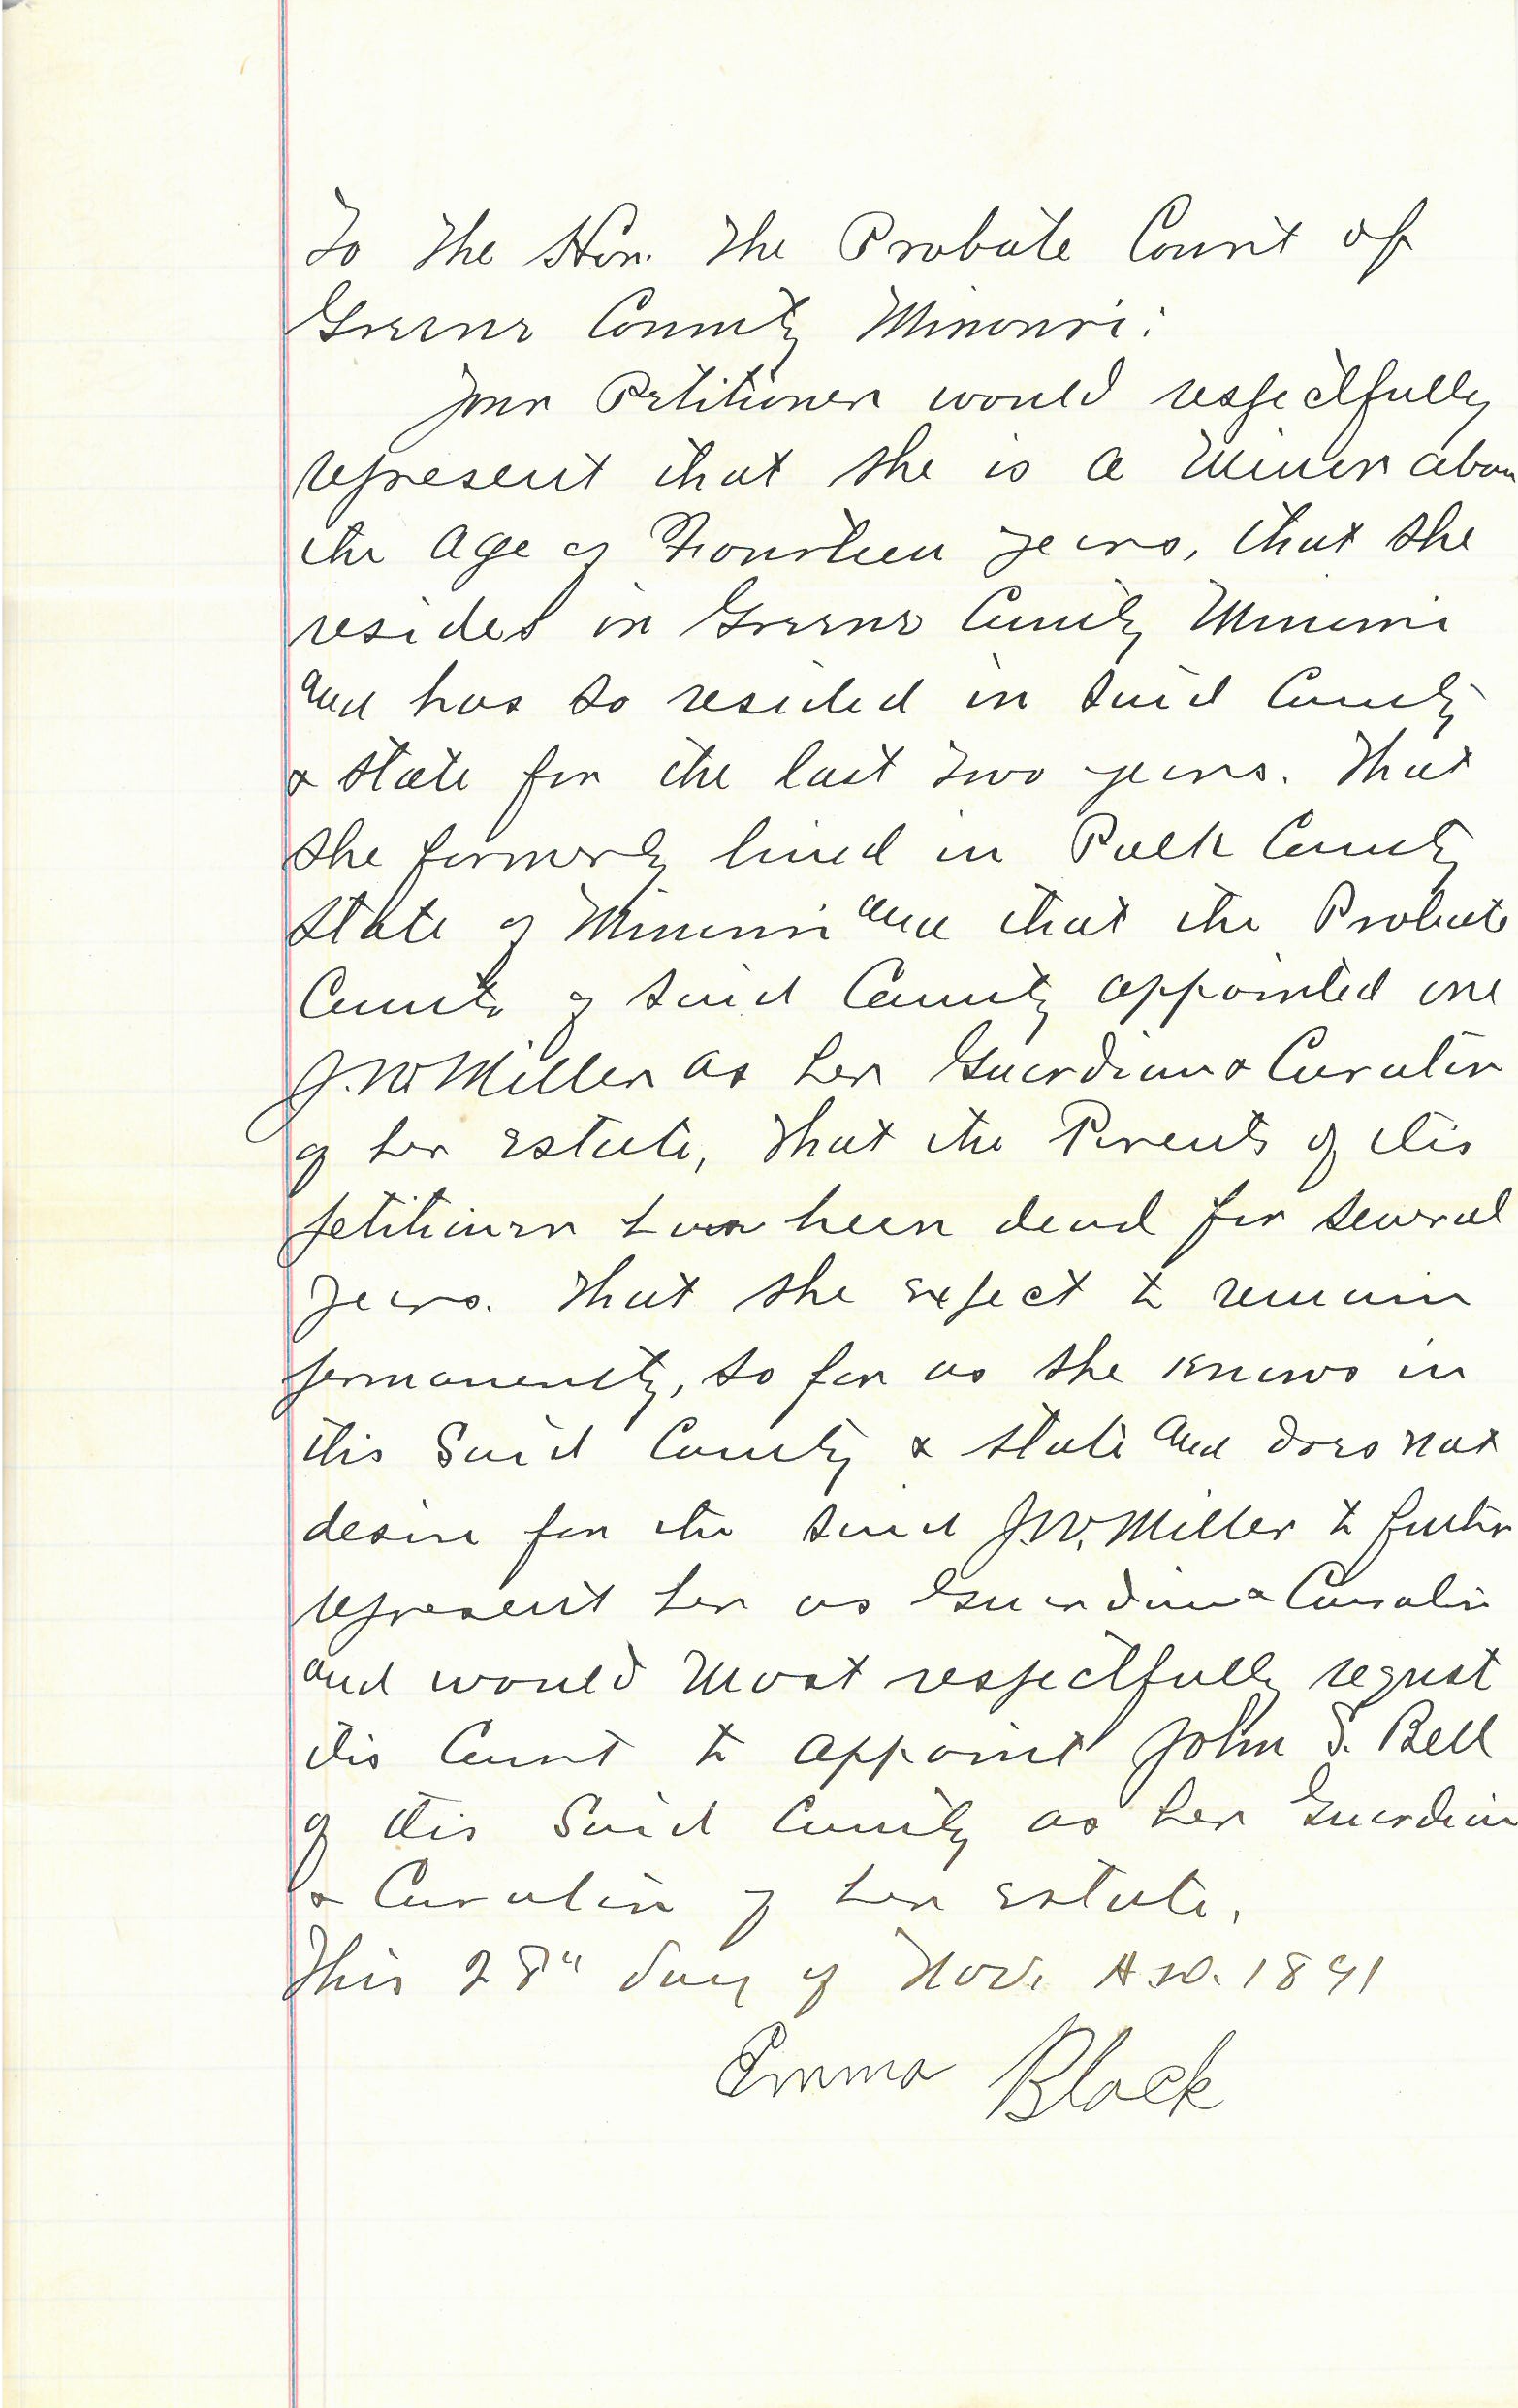 To The Hon. The Probate Court of
Greene County Missouri:
Your Petitioner would respectfully
represent that she is a Minor above
the age of Fourteen years, that she
resides in Greene County Missouri
and has so resided in said County
& state for the last two years. That
she formerly lived in Polk County
State of Missouri and that the Probate
Court of said County appointed one
J. W. Miller as her Guardian & Curator
of her Estate, That the Parents of this
petitioner have been dead for several
years. That she expect to remain
permanently, so far as she knows in
this said County & state and does not
desire for the said J. W. Miller to further
represent her as Guardian & Curator
and would most respectfully request
this Court to appoint John S. Bell
of this said County as her Guardian
& Curator of her estate.
This 28" day of Nov. A.D. 1891
Emma Black